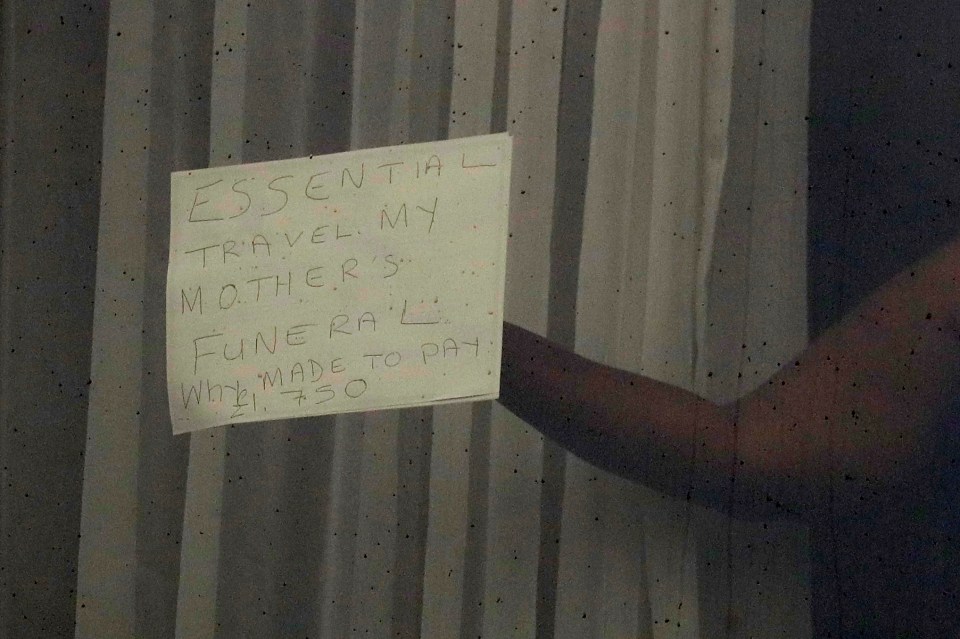 ESSENTIAL
TRAVEL. MY
MOTHER'S
FUNERAL.
Why MADE TO PAY
£1.750